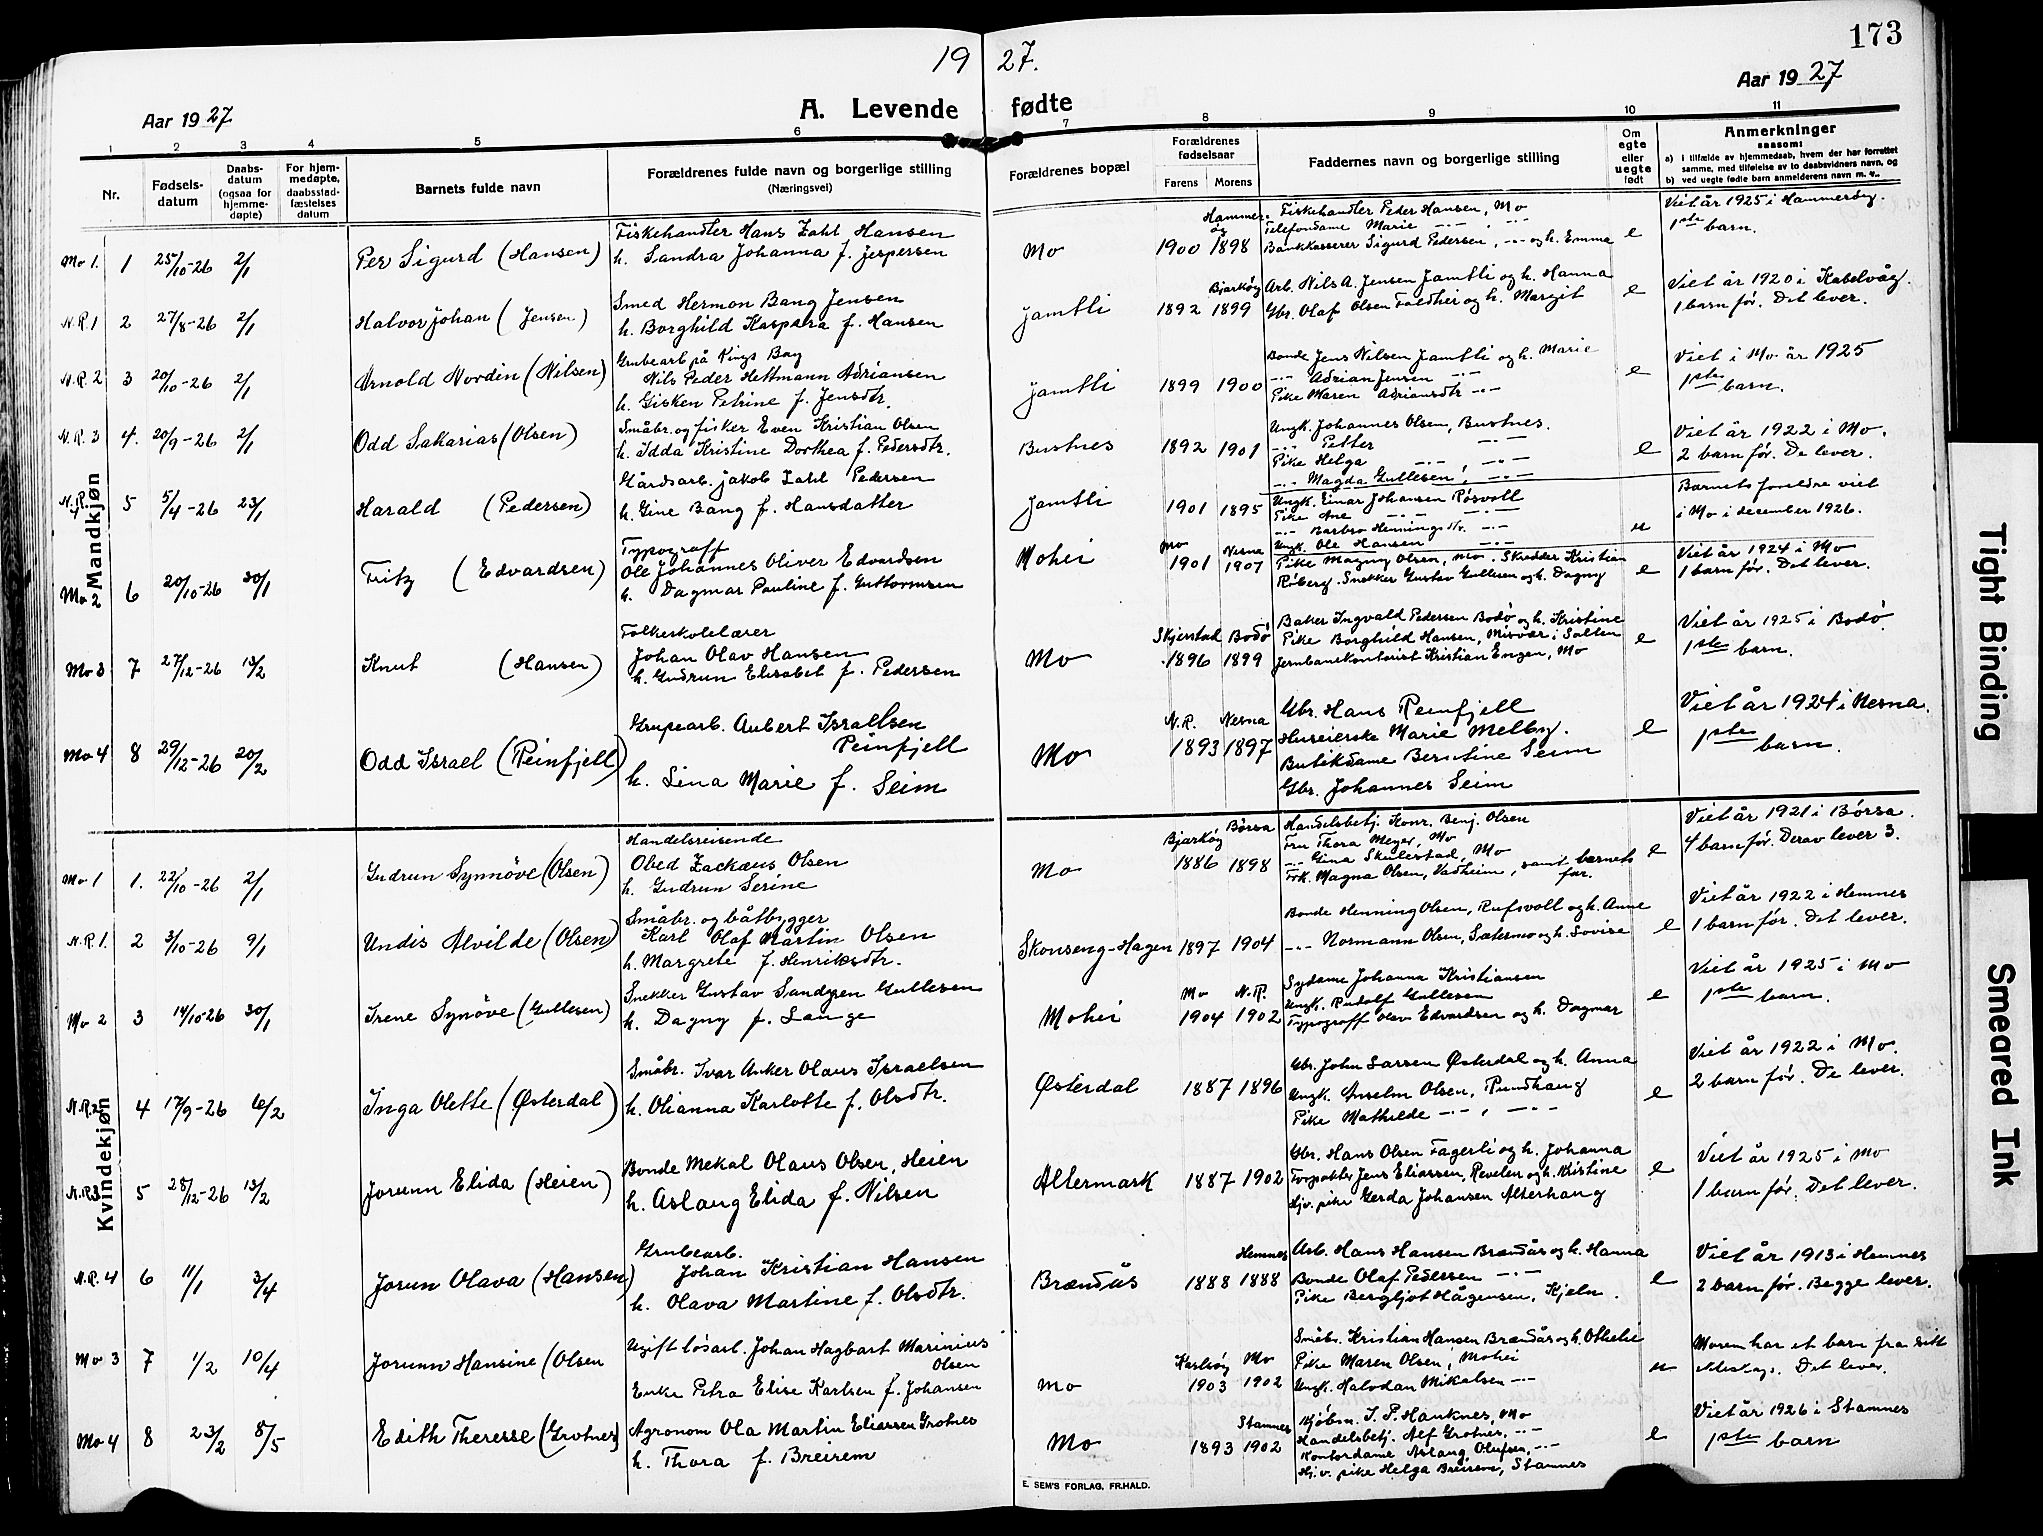 173
19 27.
Aar 1927 A. Levende fødte Aar 1927
1 2 3 4 5 6 7 8 9 10 11
Nr.
Fødsels-
datum
Daabs-
datum
(ogsaa for
hjemme-
døpte)
For hjem-
medøpte,
daabsstad-
fæstelses
datum
Barnets fulde navn
Forældrenes fulde navn og borgerlige stilling
(Næringsvei)
Forældrenes bopæl
Forældrenes
fødselsaar
Farens Morens
Faddernes navn og borgerlige stilling
Om
egte
eller
uegte
født
Anmerkninger
saasom:
a) i tilfælde av hjemmedaab, hvem der har forrettet
samme, med tilføielse av to daabsvidners navn, og
b) ved uegte fødte barn anmelderens navn m. v..
Mandkjøn
Mo 1. 1 25/10-26 2/1
Per Sigurd (Hansen)
Fiskehandler Hans Zahl Hansen
h. Sandra Johanna f. Jespersen
Mo
Hammerøy
1900 1898
Fiskehandler Peder Hansen, Mo
Telefondame Marie -"- , -"-
Bankkasserer Sigurd Pedersen, -"- og h. Emma
e
Viet år 1925 i Hammerøy.
1ste barn.
N.R. 1 2 27/8-26 2/1
Halvor Johan (Jensen)
Smed Hermon Bang Jensen
h. Borghild Kaspara f. Hansen
Jamtli
Bjarkøy
1892 1899
Arb. Nils A. Jensen Jamtli og h. Hanna
Gbr. Olaf Olsen Foldhei og h. Margit
e
Viet år 1920 i Kabelvåg.
1 barn før. Det lever.
N.R. 2 3 20/10-26 2/1
Arnold Nordin (Nilsen)
Grubearb på Kings Bay
Nils Peder Hettmann Adriansen
h. Gisken Petrine f. Jensdtr.
Jamtli
1899 1900
Bonde Jens Nilsen Jamtli og h. Marie
-"- Adrian Jensen -"-
Pike Maren Adriansdtr -"-
e
Viet i Mo år 1925
1ste barn.
N.R. 3 4. 20/9-26 2/1
Odd Sakarias (Olsen)
Småbr. og fisker Even Kristian Olsen
h. Idda Kristine Dorthea f. Pedersdtr.
Bustnes
1892 1901
Ungk. Johannes Olsen, Bustnes.
-"- Petter -"-
Pike Helga -"- , -"-
-"- Magda Gullesen, -"-
e
Viet år 1922 i Mo.
2 barn før. De lever.
N.R. 4 5 5/4-26 23/1
Harald (Pedersen)
Gårdsarb. Jakob Zahl Pedersen
h. Gine Bang f. Hansdatter
Jamtli
1901 1895
Ungk. Einar Johansen Røsvoll
Pike Ane -"- -"-
-"- Barbro Henningsdtr. -"-
Ungk. Ole Hansen -"-
u
Barnets foreldre viet
i Mo i december 1926.
Mo 2 6 20/10-26 30/1
Fritz (Edvardsen)
Typograff
Ole Johannes Oliver Edvardsen
h. Dagmar Pauline f. Guttormsen
Mohei
Mo Nesna
1901 1907
Pike Magny Olsen, Mo. Skredder Kristian
Røberg. Snekker Gustav Gullesen og h. Dagny
e
Viet år 1924 i Mo
1 barn før. Det lever.
Mo 3 7 27/12-26 13/2
Knut (Hansen)
Folkeskolelærer
Johan Olav Hansen
h. Gudrun Elisabet f. Pedersen
Mo
Skjerstad Bodø
1896 1899
Baker Ingvald Pedersen Bodø og h. Kristine
Pike Borghild Hansen, Misvær i Salten
Jernbanekontorist Kristian Engen, Mo
e
Viet år 1925 i Bodø.
1ste barn.
Mo 4 8 29/12-26 20/2
Odd Israel (Reinfjell)
Grupearb. Aubert Israelsen
Reinfjell
h. Lina Marie f. Seim
Mo
N.R. Nesna
1893 1897
Gbr. Hans Reinfjell
Huseierske Marie Melby.
Butikdame Berntine Seim
Gbr. Johannes Seim
e
Viet år 1924 i Nesna.
1ste barn.
Kvindekjøn
Mo 1 1. 22/10-26 2/1
Gudrun Synnöve (Olsen)
Handelsreisende
Obed Zackæus Olsen
h. Gudrun Serine
Mo
Bjarkøy Börsa
1886 1898
Handelsbetj. Konr. Benj. Olsen
Fru Thora Meyer, Mo
-"- Gina Skulestad, Mo
Frk. Magna Olsen, Vadheim, samt barnets
far.
e
Viet år 1921 i Børsa.
4 barn før. Derav lever 3.
N.R. 1. 2 3/10-26 9/1
Undis Alvilde (Olsen)
Småbr. og båtbygger
Karl Olaf Martin Olsen
h. Margrete f. Henriksdtr.
Skonseng-Hagen
1897 1904
Bonde Henning Olsen, Rufsvoll og h. Anne
-"- Normann Olsen, Sætermo og h. Lovise
e
Viet år 1922 i Hemnes
1 barn før. Det lever.
Mo 2 3 14/10-26 30/1
Irene Synøve (Gullesen)
Snekker Gustav Sandgren Gullesen
h. Dagny f. Lange
Mohei
Mo N.R.
1904 1902
Sydame Johanna Kristiansen
Ungk. Rudolf Gullesen
Typograff Olav Edvardsen og h. Dagmar
e
Viet år 1925 i Mo
1ste barn.
N.R. 2 4 17/9-26 6/2
Inga Olette (Østerdal)
Småbr. Ivar Anker Olaus Israelsen
h. Olianna Karlotte f. Olsdtr.
Østerdal
1887 1896
Gbr. John Larsen Østerdal og h. Anna
Ungk. Anselm Olsen, Rundhaug
Pike Mathilde -"- , -"-
e
Viet år 1922 i Mo.
2 barn før. De lever.
N.R. 3 5 25/12-26 13/2
Jorunn Elida (Heien)
Bonde Mekal Olaus Olsen, Heien
h. Aslaug Elida f. Nilsen
Altermark
1887 1902
Gbr. Hans Olsen Fagerli og h. Johanna
Forpakter Jens Eliassen, Revelen og h. Kristine
Hjv. pike Gerda Johansen Alterhaug
e
Viet år 1925 i Mo
1 barn før. Det lever.
N.R. 4 6 11/1 3/4
Jorun Olava (Hansen)
Grubearb.
Johan Kristian Hansen
h. Olava Martine f. Olsdtr.
Brændås
Hemnes
1888 1888
Arb. Hans Hansen Brændås og h. Hanna
Bonde Olaf Pedersen -"-
Pike Bergljot Hågensen, Kjeln.
e
Viet år 1913 i Hemnes
2 barn før. Begge lever.
Mo 3 7 1/2 10/4
Jorunn Hansine (Olsen
Ugift løsarb. Johan Hagbart Marinius
Olsen
Enke Petra Elise Karlsen f. Johansen
Mo
Karlsøy Mo
1903 1902
Småbr. Kristian Hansen Brændås og h. Othelie
Pike Maren Olsen, Mohei
Ungk. Halvdan Mikalsen -"-
u
Moren har et barn fra sitt
ekteskap. Det lever.
Mo 4 8 23/2 8/5
Edith Therese (Grotnes)
Agronom Ola Martin Eliassen Grotnes
h. Thora f. Breirem
Mo
Stamnes
1893 1902
Kjøbm. I. P. Hauknes, Mo
Handelsbetj. Alf Grotnes, -"-
Kontordame Aslaug Olufsen, -"-
Hj.v. pike Helga Breirem, Stamnes
e
Viet år 1926 i Stamnes
1ste barn
E. SEM'S FORLAG, FR.HALD.
Tight Binding
Smeared Ink